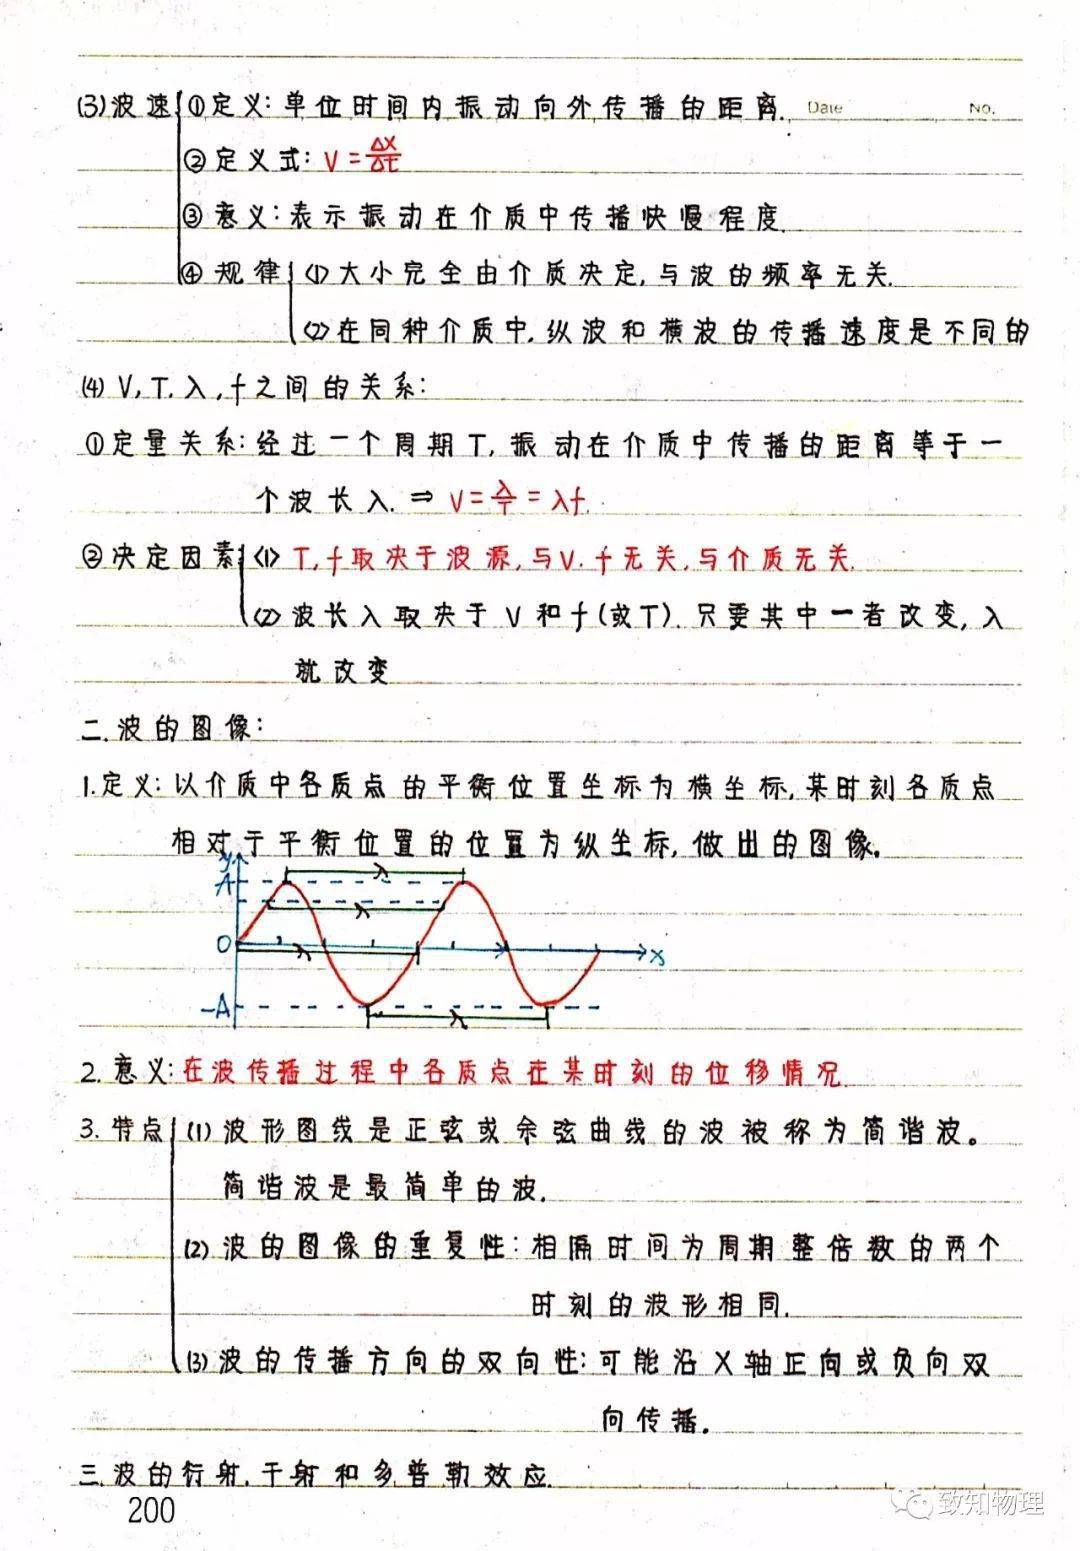 Date No.
(3)波速 ①定义:单位时间内振动向外传播的距离.
②定义式: V=Δx/Δt
③意义:表示振动在介质中传播快慢程度.
④规律 (1)大小完全由介质决定,与波的频率无关.
(2)在同种介质中,纵波和横波的传播速度是不同的
(4) V,T,λ,f之间的关系:
①定量关系:经过一个周期T,振动在介质中传播的距离等于一
个波长λ. ⇒ V=λ/T=λf.
②决定因素 (1) T,f取决于波源,与V.f无关,与介质无关.
(2)波长λ取决于V和f(或T).只要其中一者改变,λ
就改变
二.波的图像:
1.定义:以介质中各质点的平衡位置坐标为横坐标,某时刻各质点
相对于平衡位置的位置为纵坐标,做出的图像.
y
A λ
λ
O λ x
-A λ
2.意义:在波传播过程中各质点在某时刻的位移情况.
3.特点 (1)波形图线是正弦或余弦曲线的波被称为简谐波。
简谐波是最简单的波.
(2)波的图像的重复性:相隔时间为周期整倍数的两个
时刻的波形相同.
(3)波的传播方向的双向性:可能沿X轴正向或负向双
向传播.
三.波的衍射.干射和多普勒效应.
200
致知物理